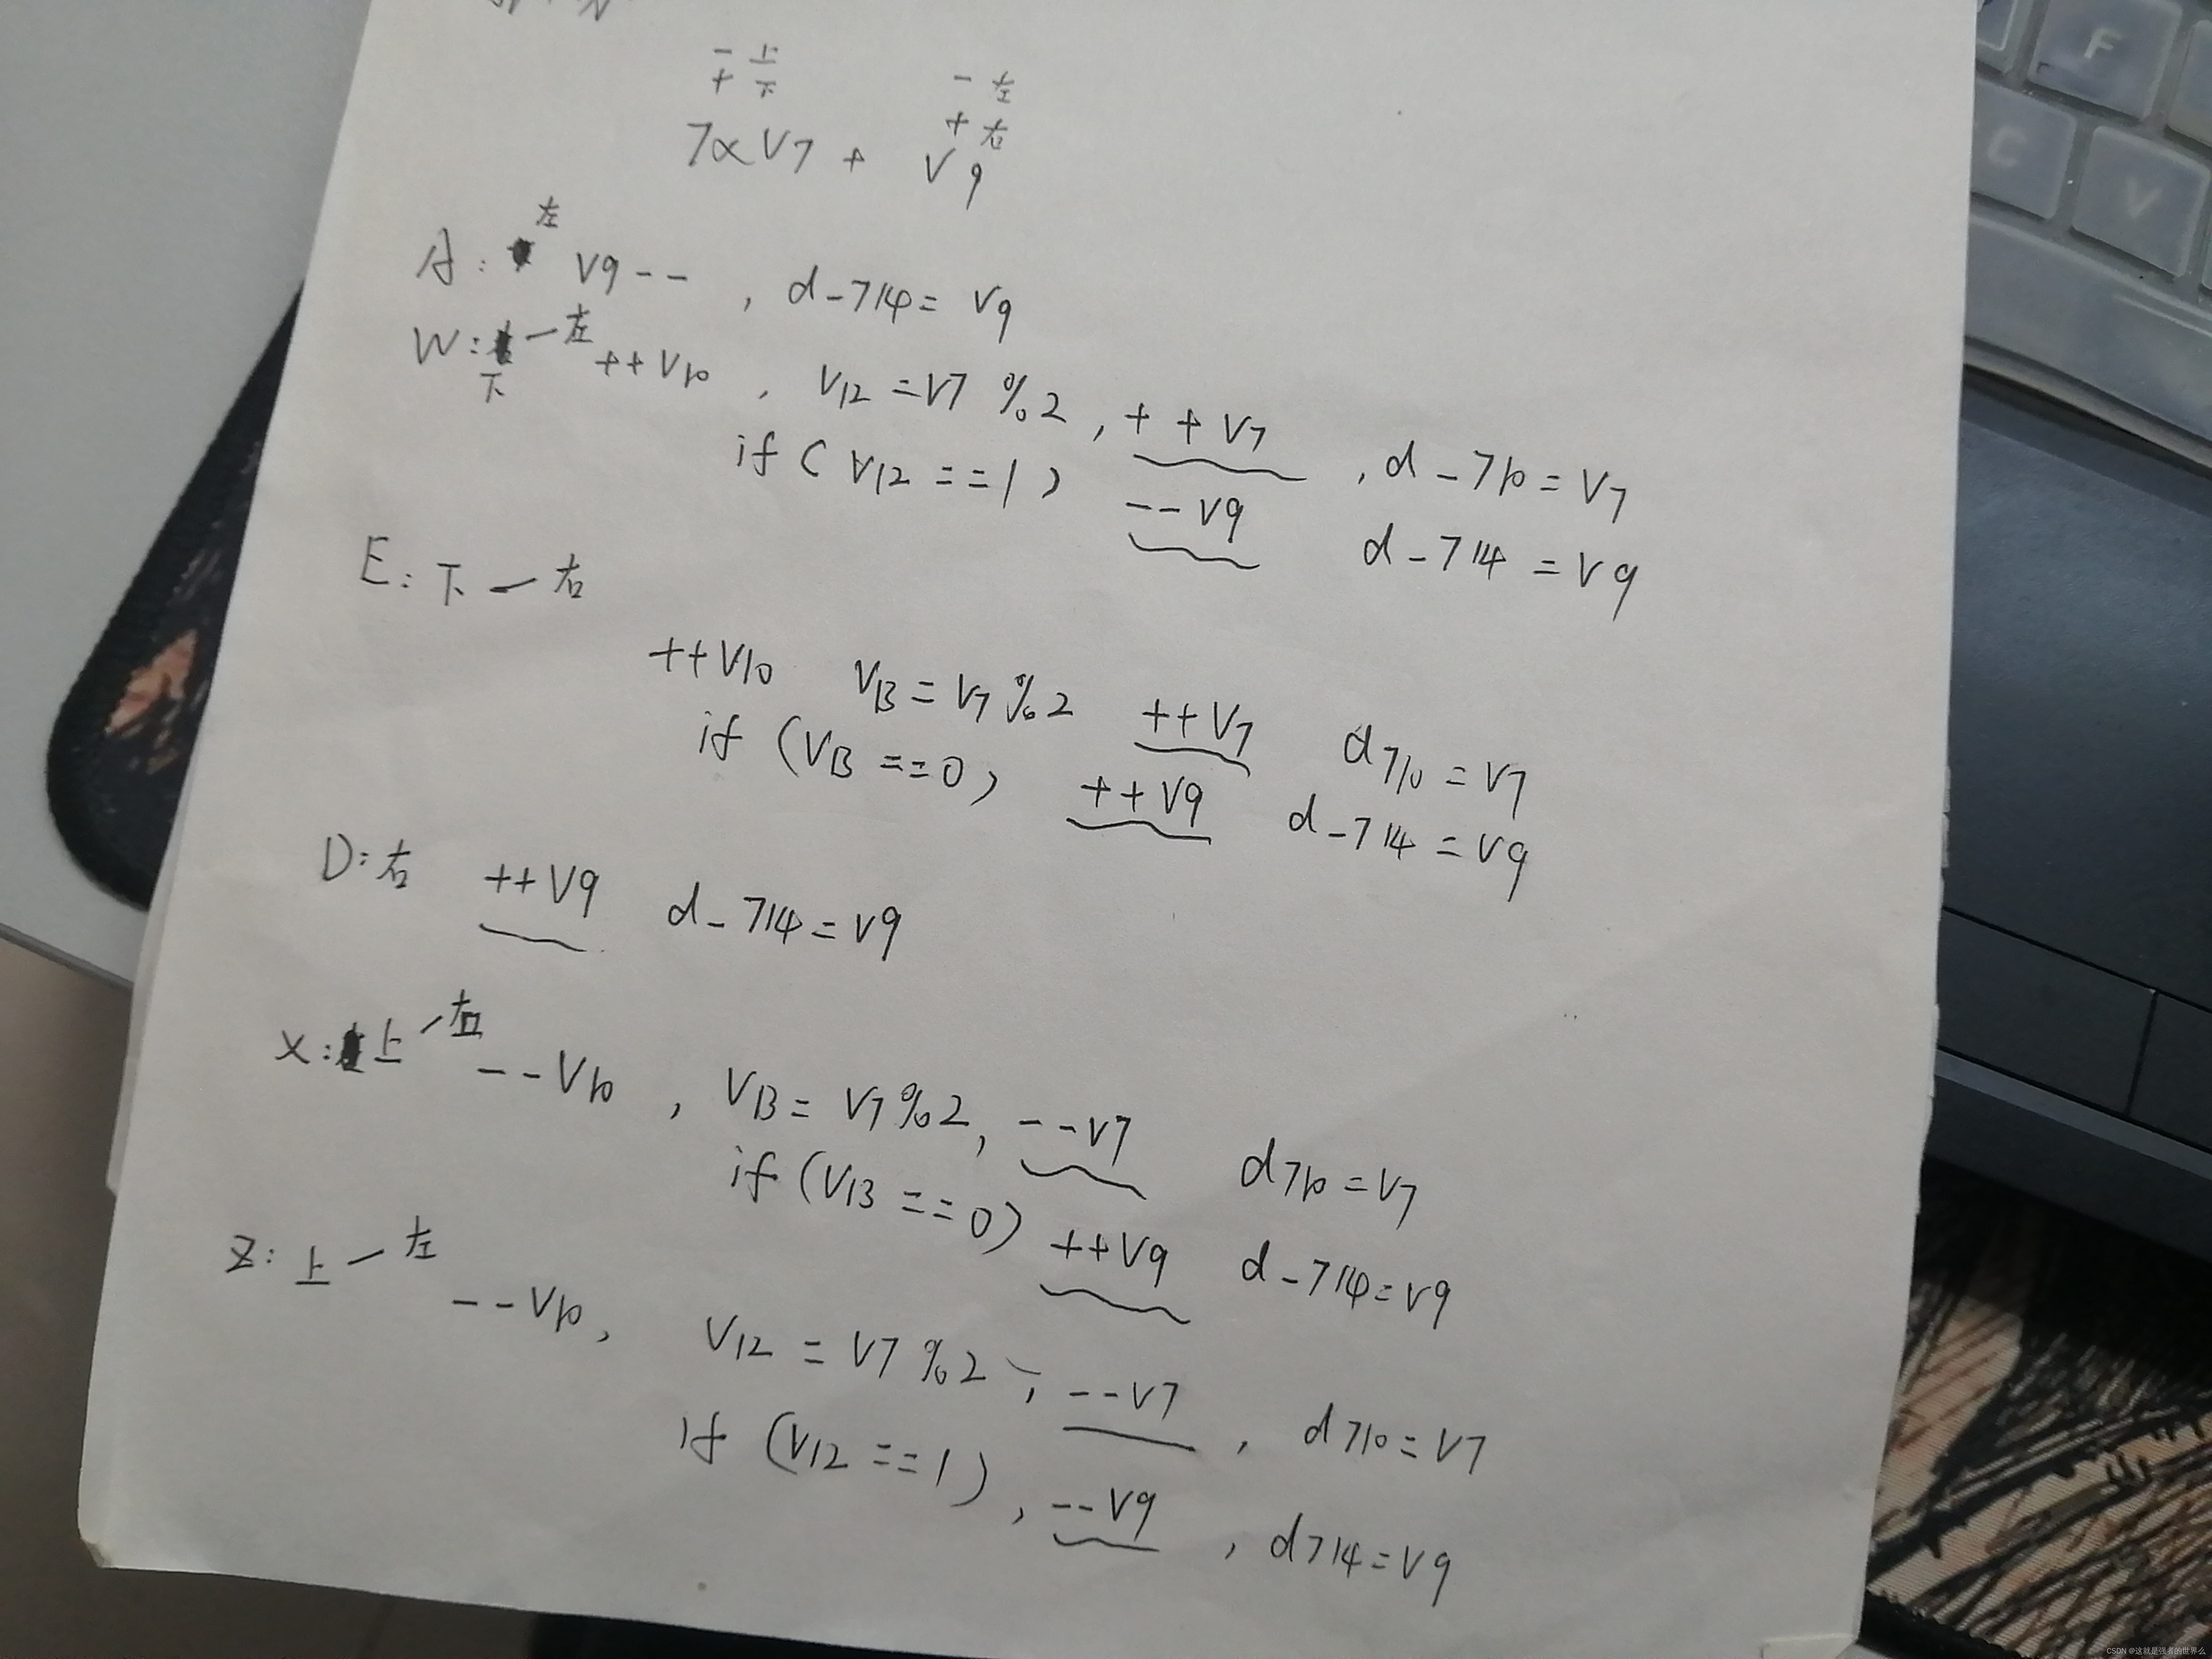 - 上
+ 下
- 左
+ 右
7×V7 + V9
A: 左 V9-- , d-714= V9
W: 下一左 ++V10 , V12 =V7 %2 , ++V7 , d-710=V7
if (V12 ==1) --V9 d-714 =V9
E: 下一右
++V10 V13=V7%2 ++V7 d710=V7
if (V13 ==0) ++V9 d-714 =V9
D: 右 ++V9 d-714=V9
X: 上一右 --V10 , V13= V7%2, --V7 d710=V7
if (V13 ==0) ++V9 d-714=V9
Z: 上一左 --V10, V12 = V7%2, --V7 , d710=V7
if (V12 ==1) , --V9 , d714=V9
F
C
V
CSDN @这就是强者的世界么